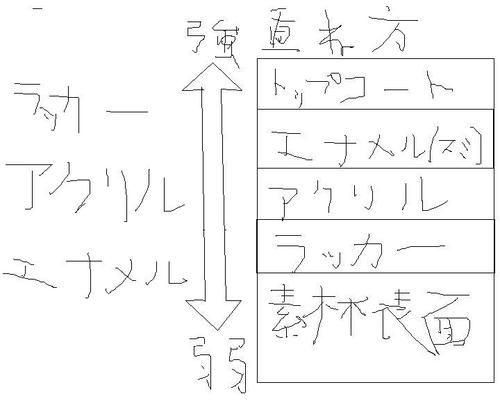 強
ラッカー
アクリル
エナメル
弱
重ね方
トップコート
エナメル(スミ)
アクリル
ラッカー
素材表面